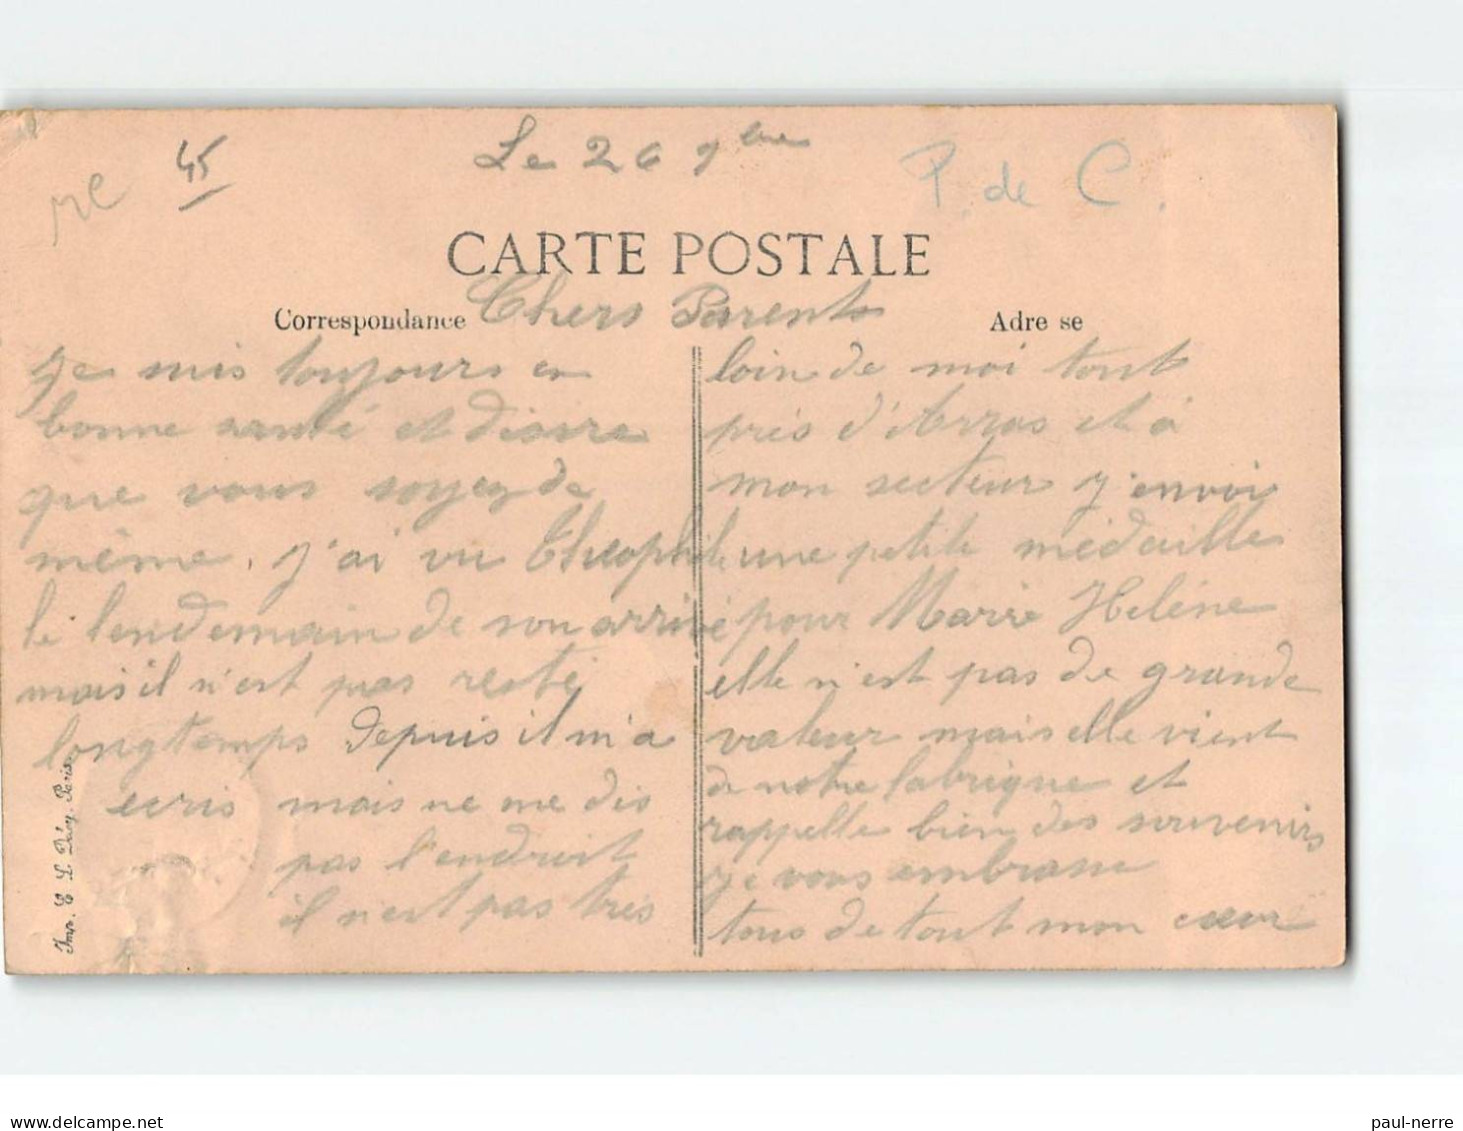 45
Le 26 9bre
P. de C.
CARTE POSTALE
Correspondance
Chers Parents
Adre se
Je suis toujours en
bonne santé et desire
que vous soyez de
même. J'ai vu Théophile
le lendemain de son arrivé
mais il n'est pas resté
longtemps depuis il m'a
ecris mais ne me dis
pas l'endroit
il n'est pas très
loin de moi tout
près d'Arras et à
mon secteur j'envoie
une petite médaille
pour Marie Heléne
elle n'est pas de grande
valeur mais elle vient
de notre fabrique et
rappelle bien des souvenirs
Je vous embrasse
tous de tout mon cœur
Imp. E. L. Déey. Paris
paul-nerre